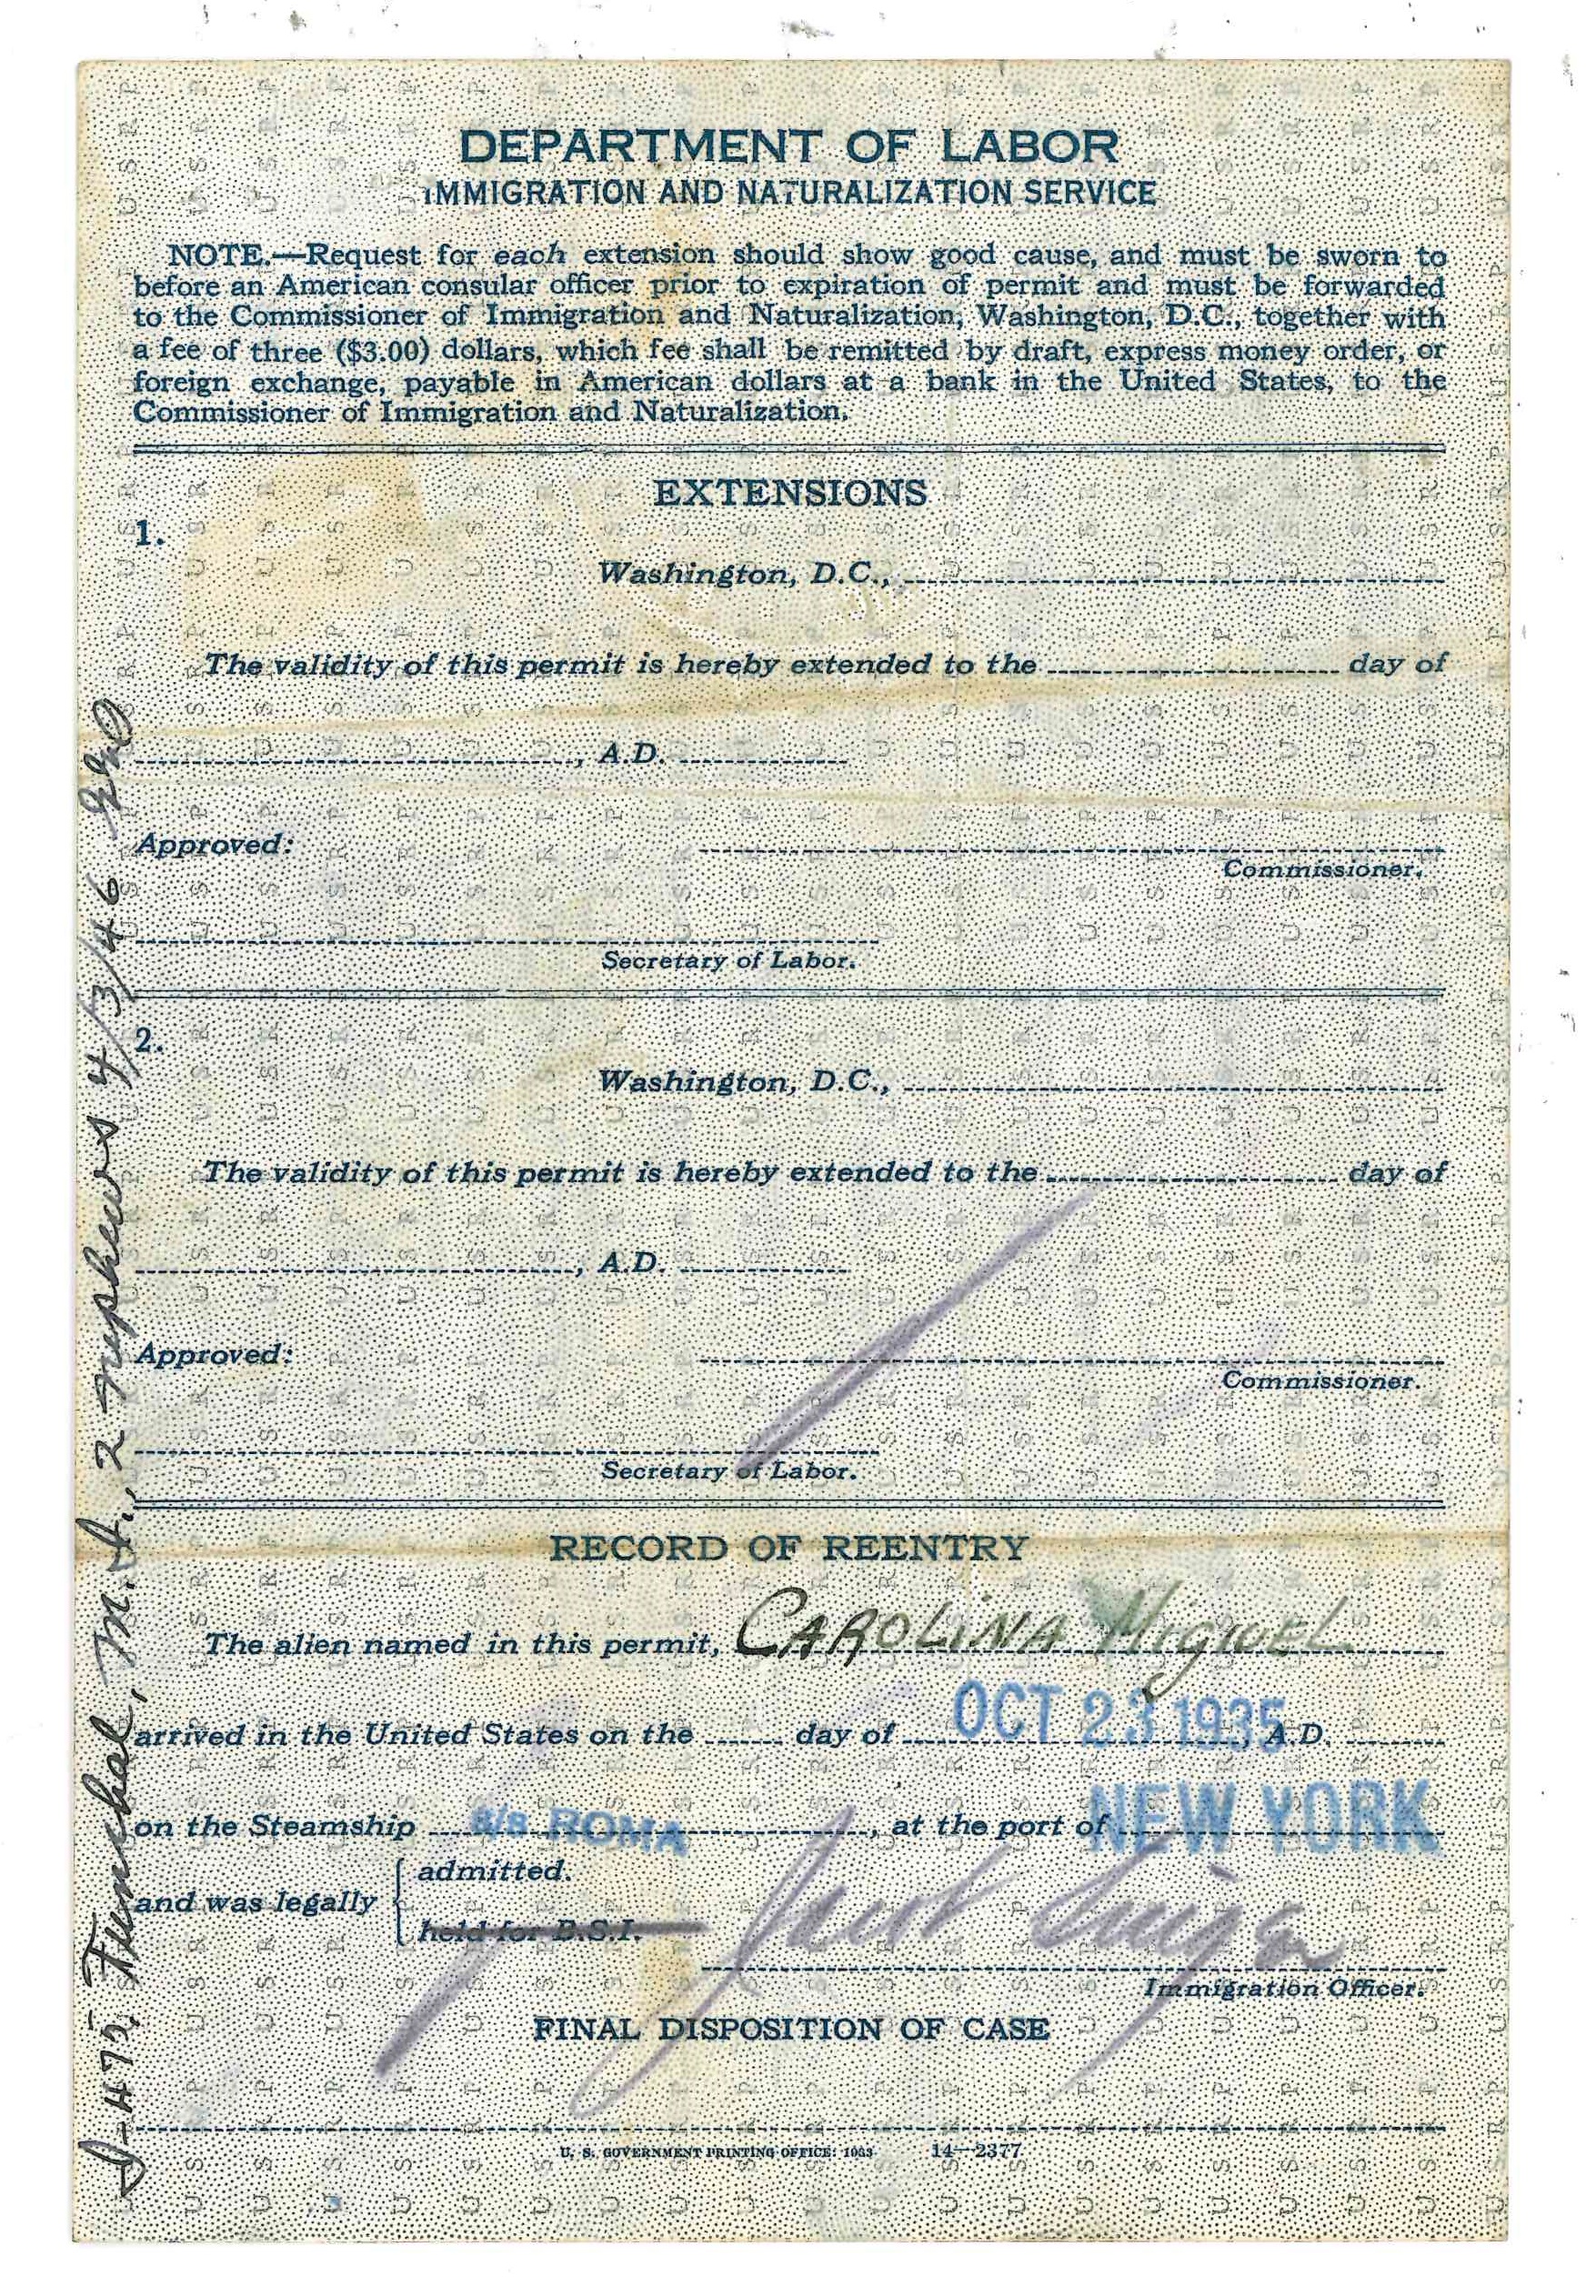 DEPARTMENT OF LABOR
IMMIGRATION AND NATURALIZATION SERVICE
NOTE.—Request for each extension should show good cause, and must be sworn to
before an American consular officer prior to expiration of permit and must be forwarded
to the Commissioner of Immigration and Naturalization, Washington, D.C., together with
a fee of three ($3.00) dollars, which fee shall be remitted by draft, express money order, or
foreign exchange, payable in American dollars at a bank in the United States, to the
Commissioner of Immigration and Naturalization.
EXTENSIONS
1.
Washington, D.C.,
The validity of this permit is hereby extended to the day of
, A.D.
Approved:
Commissioner.
Secretary of Labor.
2.
Washington, D.C.,
The validity of this permit is hereby extended to the day of
, A.D.
Approved:
Commissioner.
Secretary of Labor.
RECORD OF REENTRY
The alien named in this permit, CAROLINA MIGUEL
arrived in the United States on the day of OCT 23 1935 A.D.
on the Steamship S/S ROMA, at the port of NEW YORK
and was legally admitted.
held for B.S.I.
Immigration Officer.
FINAL DISPOSITION OF CASE
U. S. GOVERNMENT PRINTING OFFICE: 1933 14—2377
I-475, Funchal, M.I., 2 nephews 4/3/46